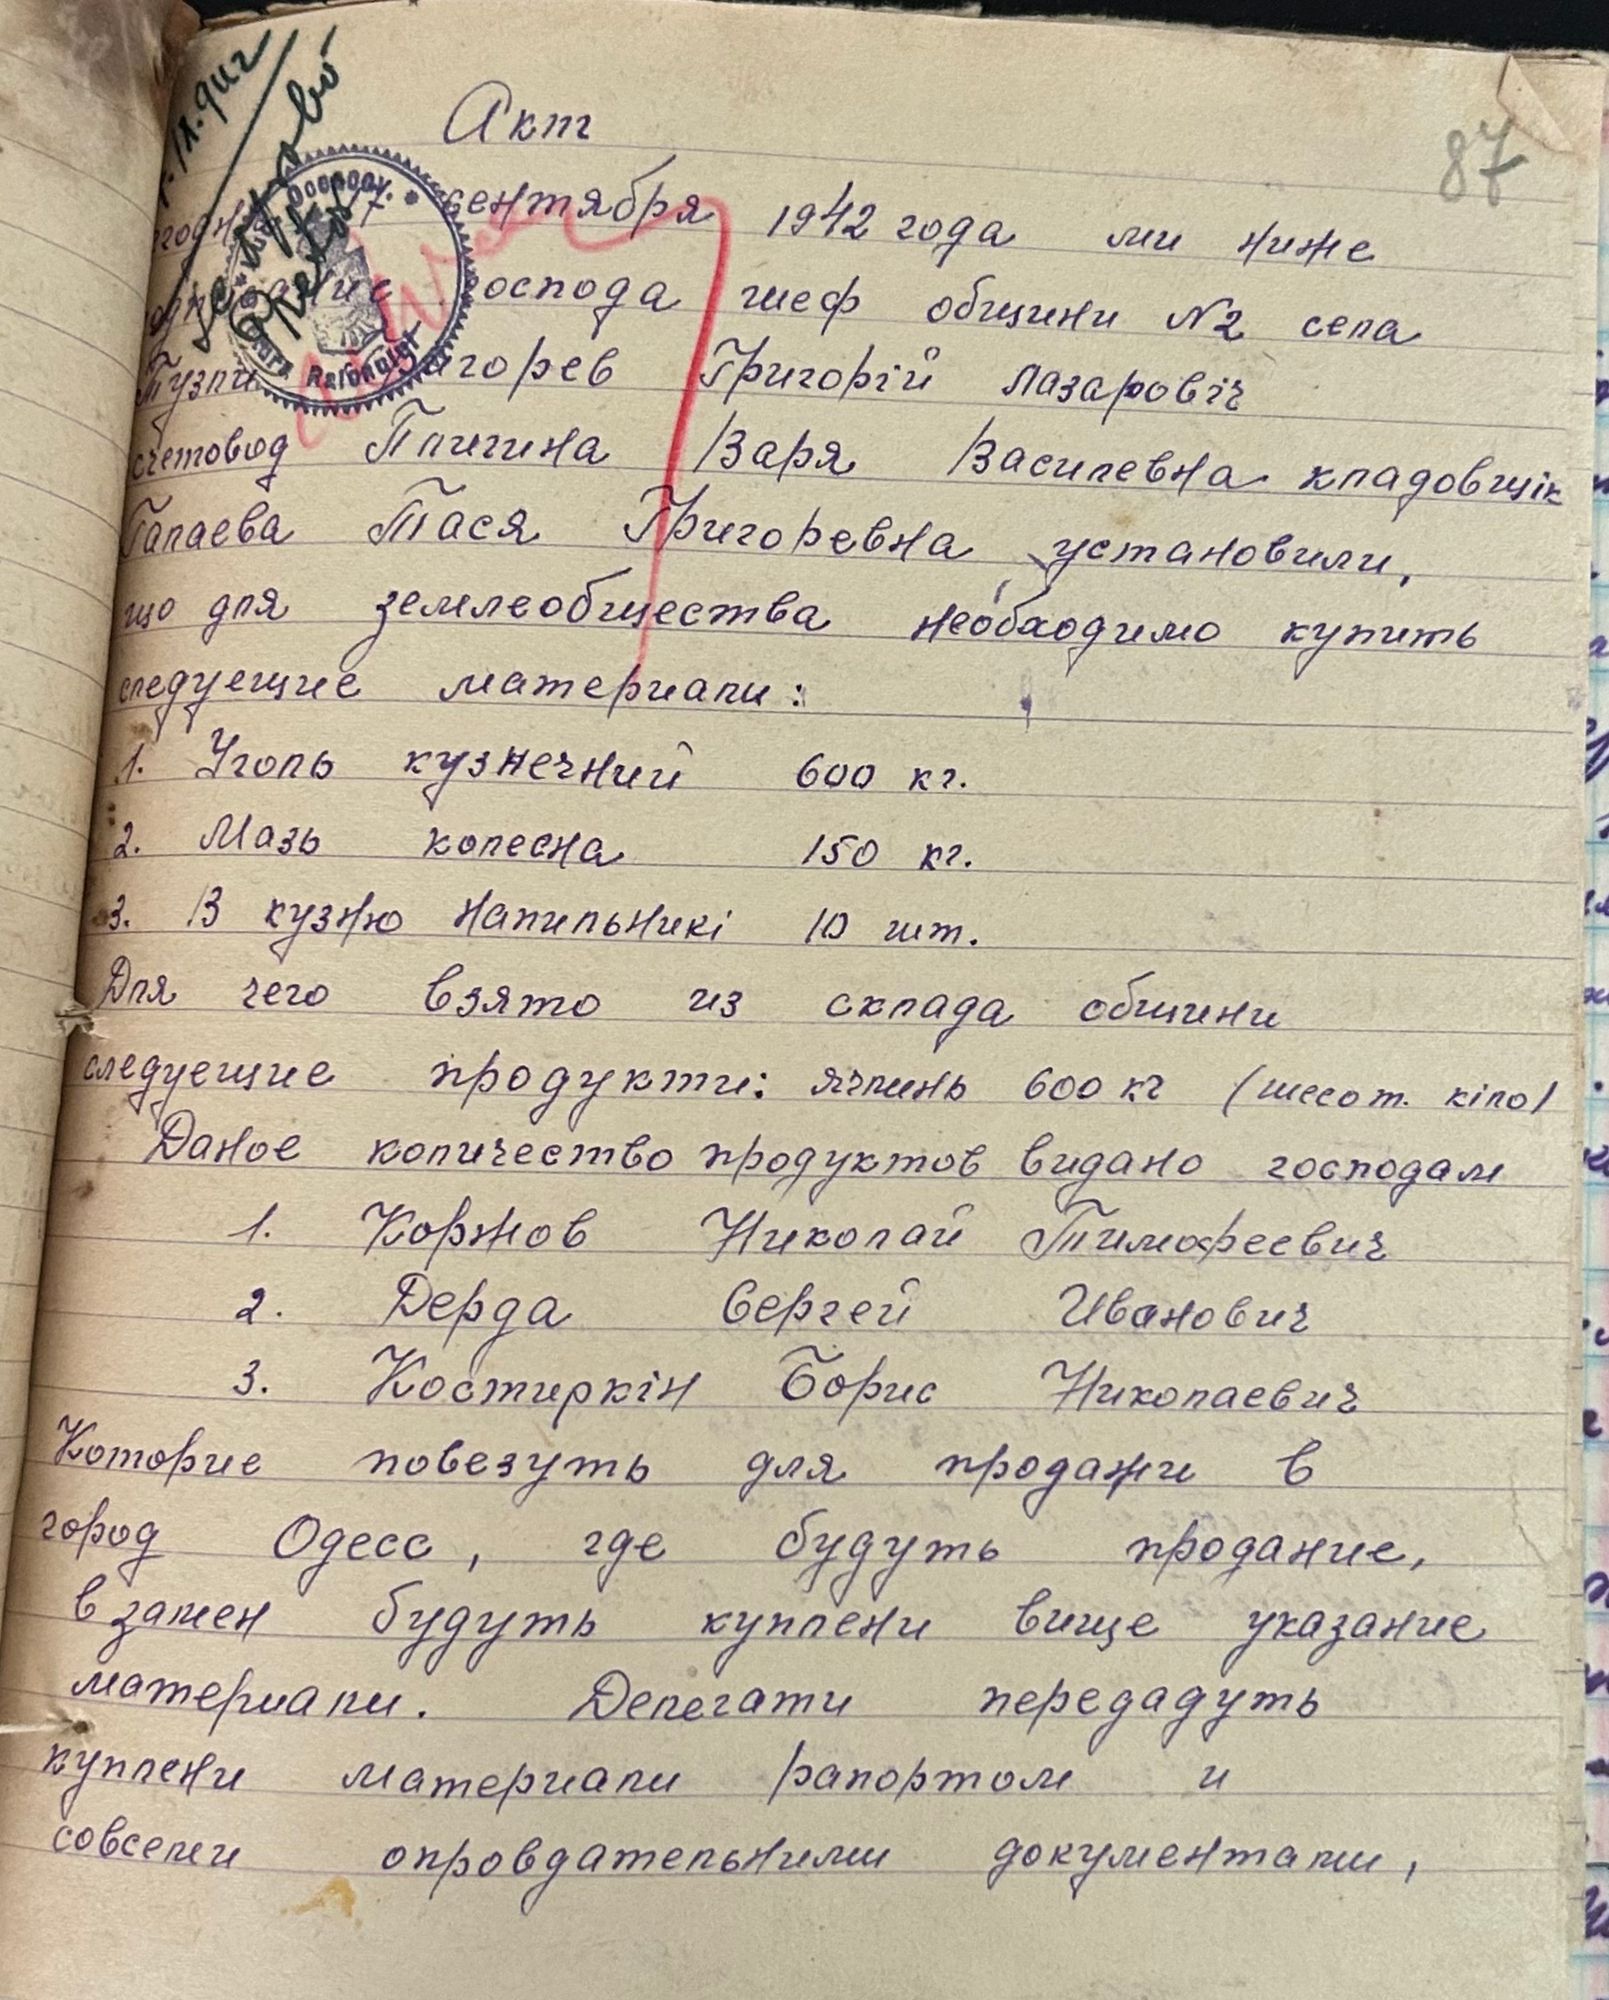 87
Акт
17 сентября 1942 года ми ниже
господа шеф общини №2 села
Тузли Григорев Григорій Лазаровіч
счетовод Пличина Варя Василевна кладовщік
Галаева Тася Григоревна установили,
що для землеобщества необходимо купить
следуещие материали:
1. Уголь кузнечний 600 кг.
2. Мазь колесна 150 кг.
3. В кузню напильникі 10 шт.
Для чего взято из склада общини
следуещие продукти: ячмень 600 кг (шесот. кіло)
Даное количество продуктов видано господам
1. Коржов Николай Тимофеевич
2. Дерда Сергей Иванович
3. Костиркін Борис Николаевич
Которие повезуть для продажи в
город Одесс, где будуть продание,
взамен будуть куплени више указание
материали. Делегати передадуть
куплени материали рапортом и
совсеми опровдательними документами,